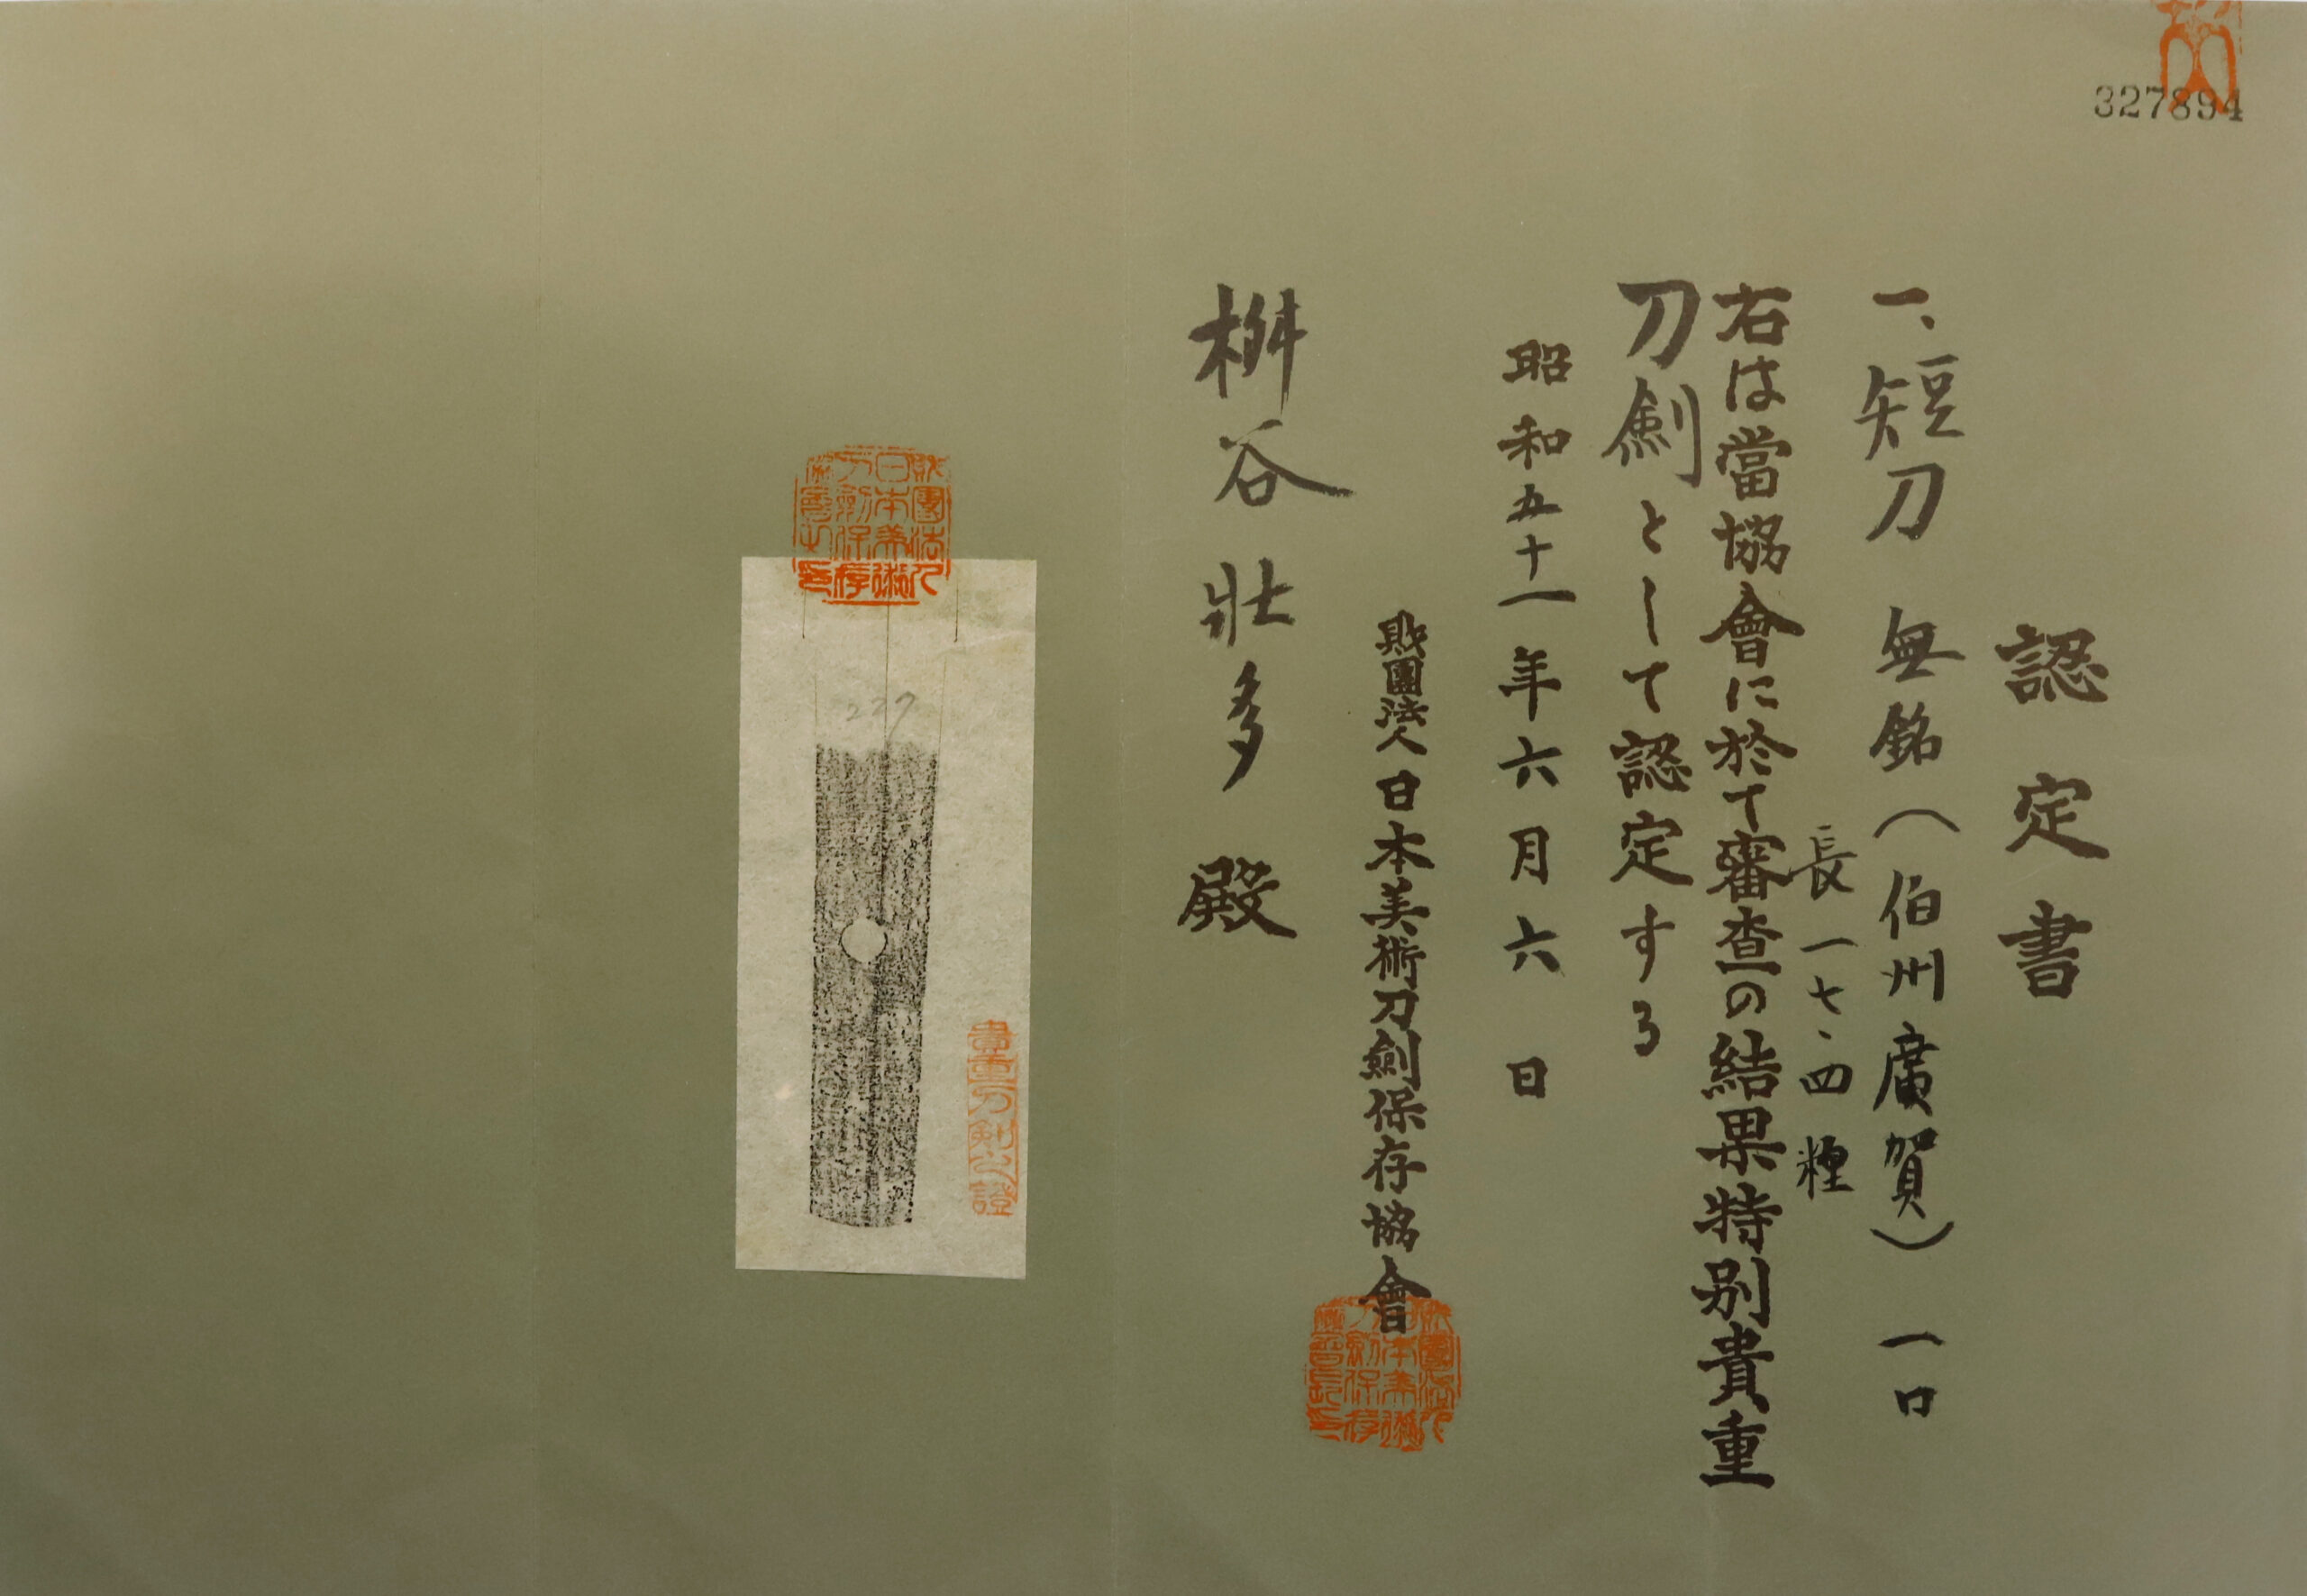 327894
認定書
一、短刀 無銘（伯州廣賀） 一口
長一七、四糎
右は當協會に於て審査の結果特別貴重
刀劍として認定する
昭和五十一年六月六日
財團法人日本美術刀劍保存協會
桝谷壯多殿
227
貴重刀剣之證